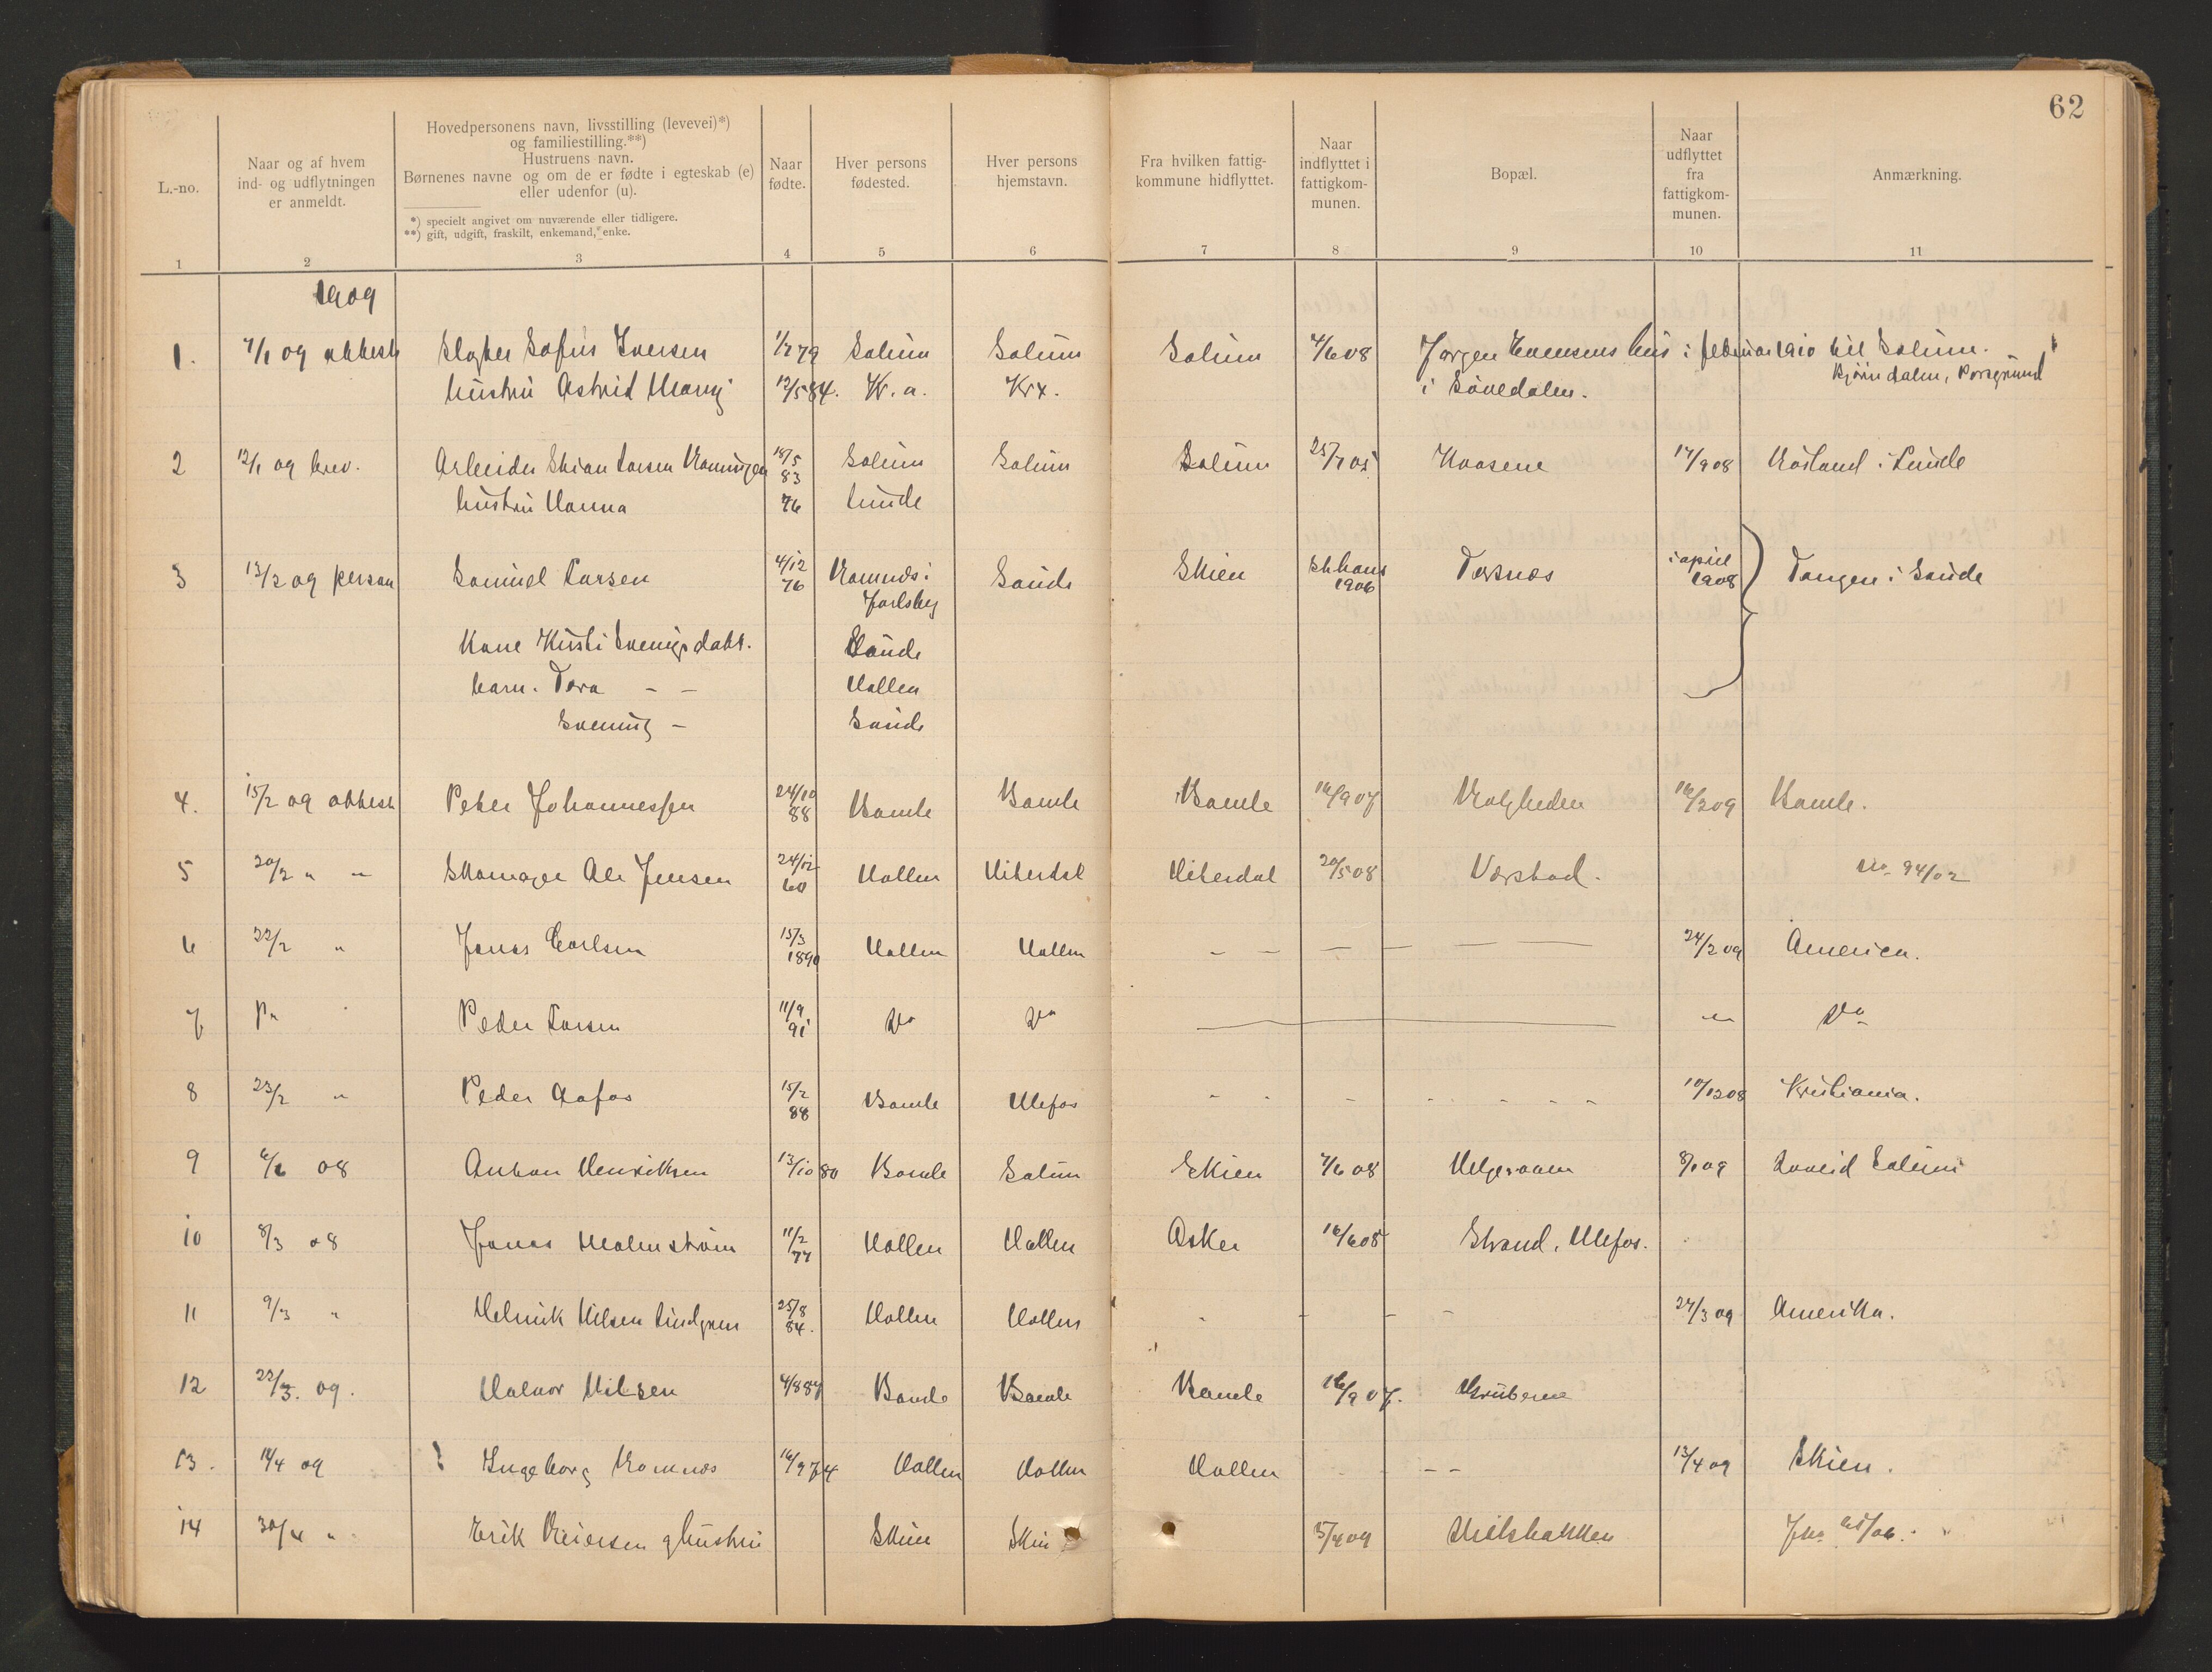 62
L.-no.
Naar og af hvem
ind- og udflytningen
er anmeldt.
Hovedpersonens navn, livsstilling (levevei)*)
og familiestilling.**)
Hustruens navn.
Børnenes navne og om de er fødte i egteskab (e)
eller udenfor (u).
*) specielt angivet om nuværende eller tidligere.
**) gift, udgift, fraskilt, enkemand, enke.
Naar
fødte.
Hver persons
fødested.
Hver persons
hjemstavn.
Fra hvilken fattig-
kommune hidflyttet.
Naar
indflyttet i
fattigkom-
munen.
Bopæl.
Naar
udflyttet
fra
fattigkom-
munen.
Anmærkning.
1 2 3 4 5 6 7 8 9 10 11
1909
1. 7/1 09 attest Sofus Iversen 79 Solum Solum Solum 4/6 08 Jørgen hus i februar 1910 til Solum.
hustru Astrid 12/5 84. Kr.a. i Sauedalen. Bjørndalen, Porsgrund
2 12/1 09 brev. Arbeider Larsen 18/5 83 Solum Solum Solum 25/7 05 Kaasene 17/9 08 i Lunde
hustru Hanna 76 Lunde
3 13/2 09 person Samuel Larsen 4/12 76 Ramnæs i Jarlsberg Saude Skien St.hans 1906 Torsnæs i april 1908 Tangen i Saude
Kone datt. Saude
barn. Tora - - Hollen
- Saude
4. 15/2 09 attest Peter Johannessen 24/10 88 Bamle Bamle Bamle 16/9 07 Bamle.
5 20/2 " " Skomager Ole Jensen 24/12 60 Hollen Hiterdal Hiterdal 20/5 08 Værstad. 94/02
6 22/2 " Jonas Carlsen 15/3 1890 Hollen Hollen - - - - 24/2 09 America.
7 Peder Larsen 11/9 91 do do do
8 23/2 " Peder Aafos 15/2 88 Bamle Ulefos - - - - 10/12 08 Kristiania.
9 08 Anton Henriksen 13/10 80 Bamle Solum Skien 7/6 08 Helgeraaen 8/1 09 Solum
10 8/3 08 Jonas Malmstrøm 11/2 77 Hollen Hollen Asker 16/6 08 Strand, Ulefos.
11 9/3 " Nilsen Lindgren 25/8 84. Hollen Hollen - - - - 24/3 09 Amerika.
12 22/3. 09. Halvor Nilsen 4/8 87 Bamle Bamle Bamle 16/9 07. Gruberne
13. 14/4 09 Ingeborg Romnæs 16/9 74 Hollen Hollen Hollen - - - 13/4 09 Skien.
14 30/4 " Erik Reiersen & hustru Skien Skien 5/4 09